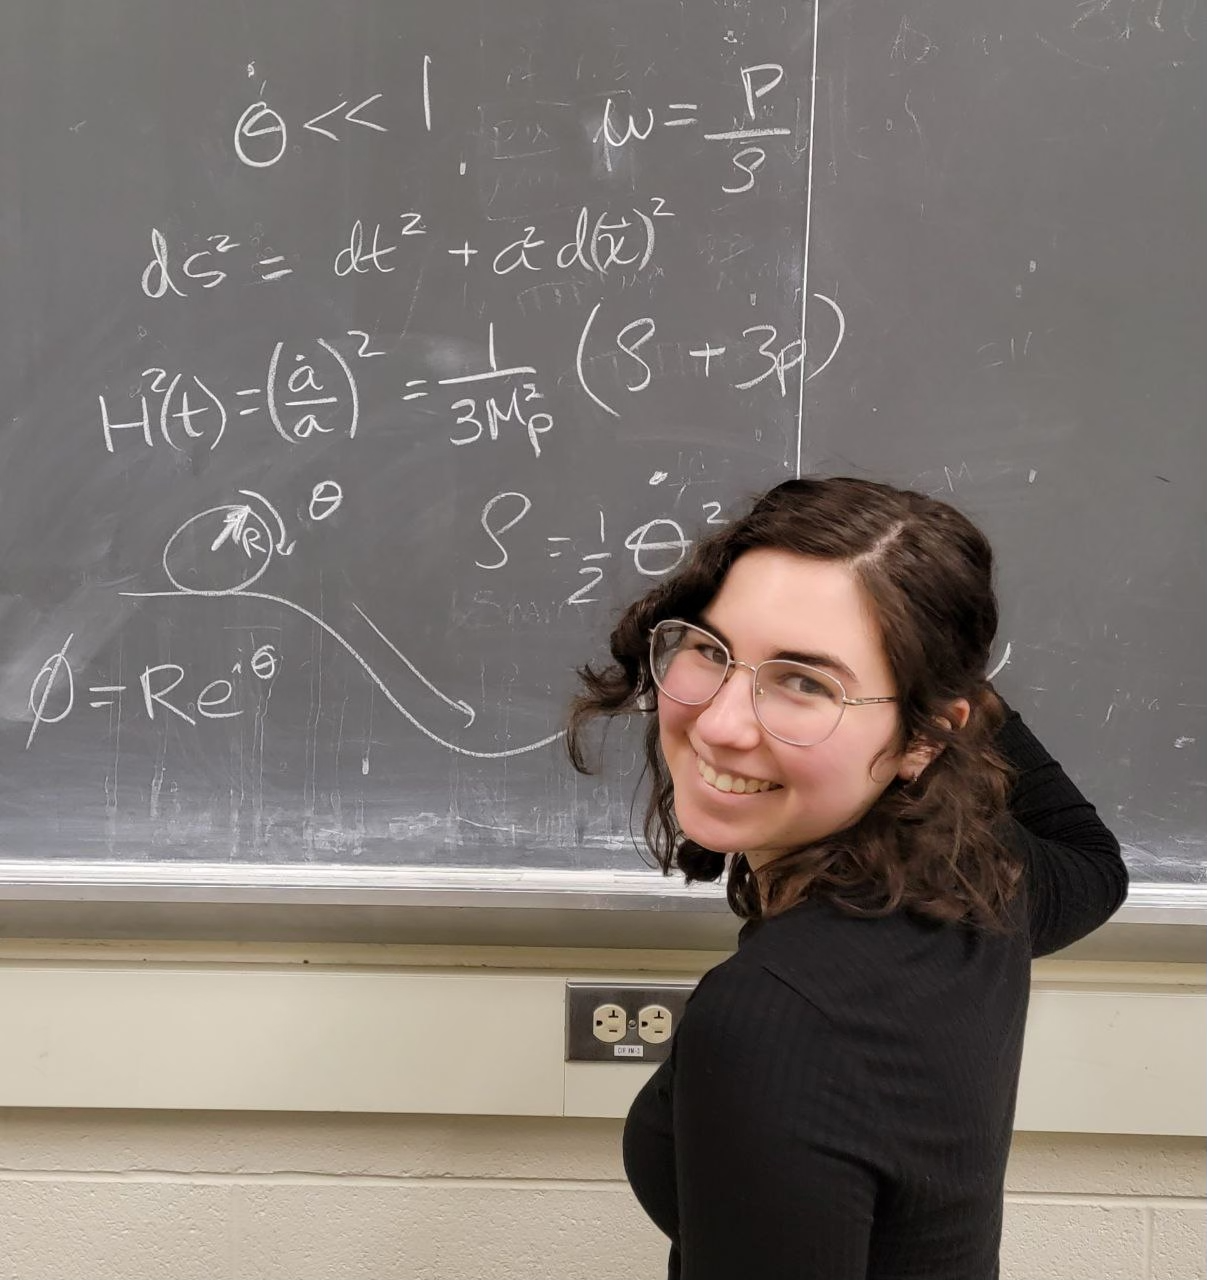 θ̇ << 1
w = P/ρ
ds² = dt² + a² d(x⃗)²
H²(t) = (ȧ/a)² = 1/3M²ₚ (ρ + 3p)
R θ
ρ = 1/2 θ̇²
ϕ = Re^iθ